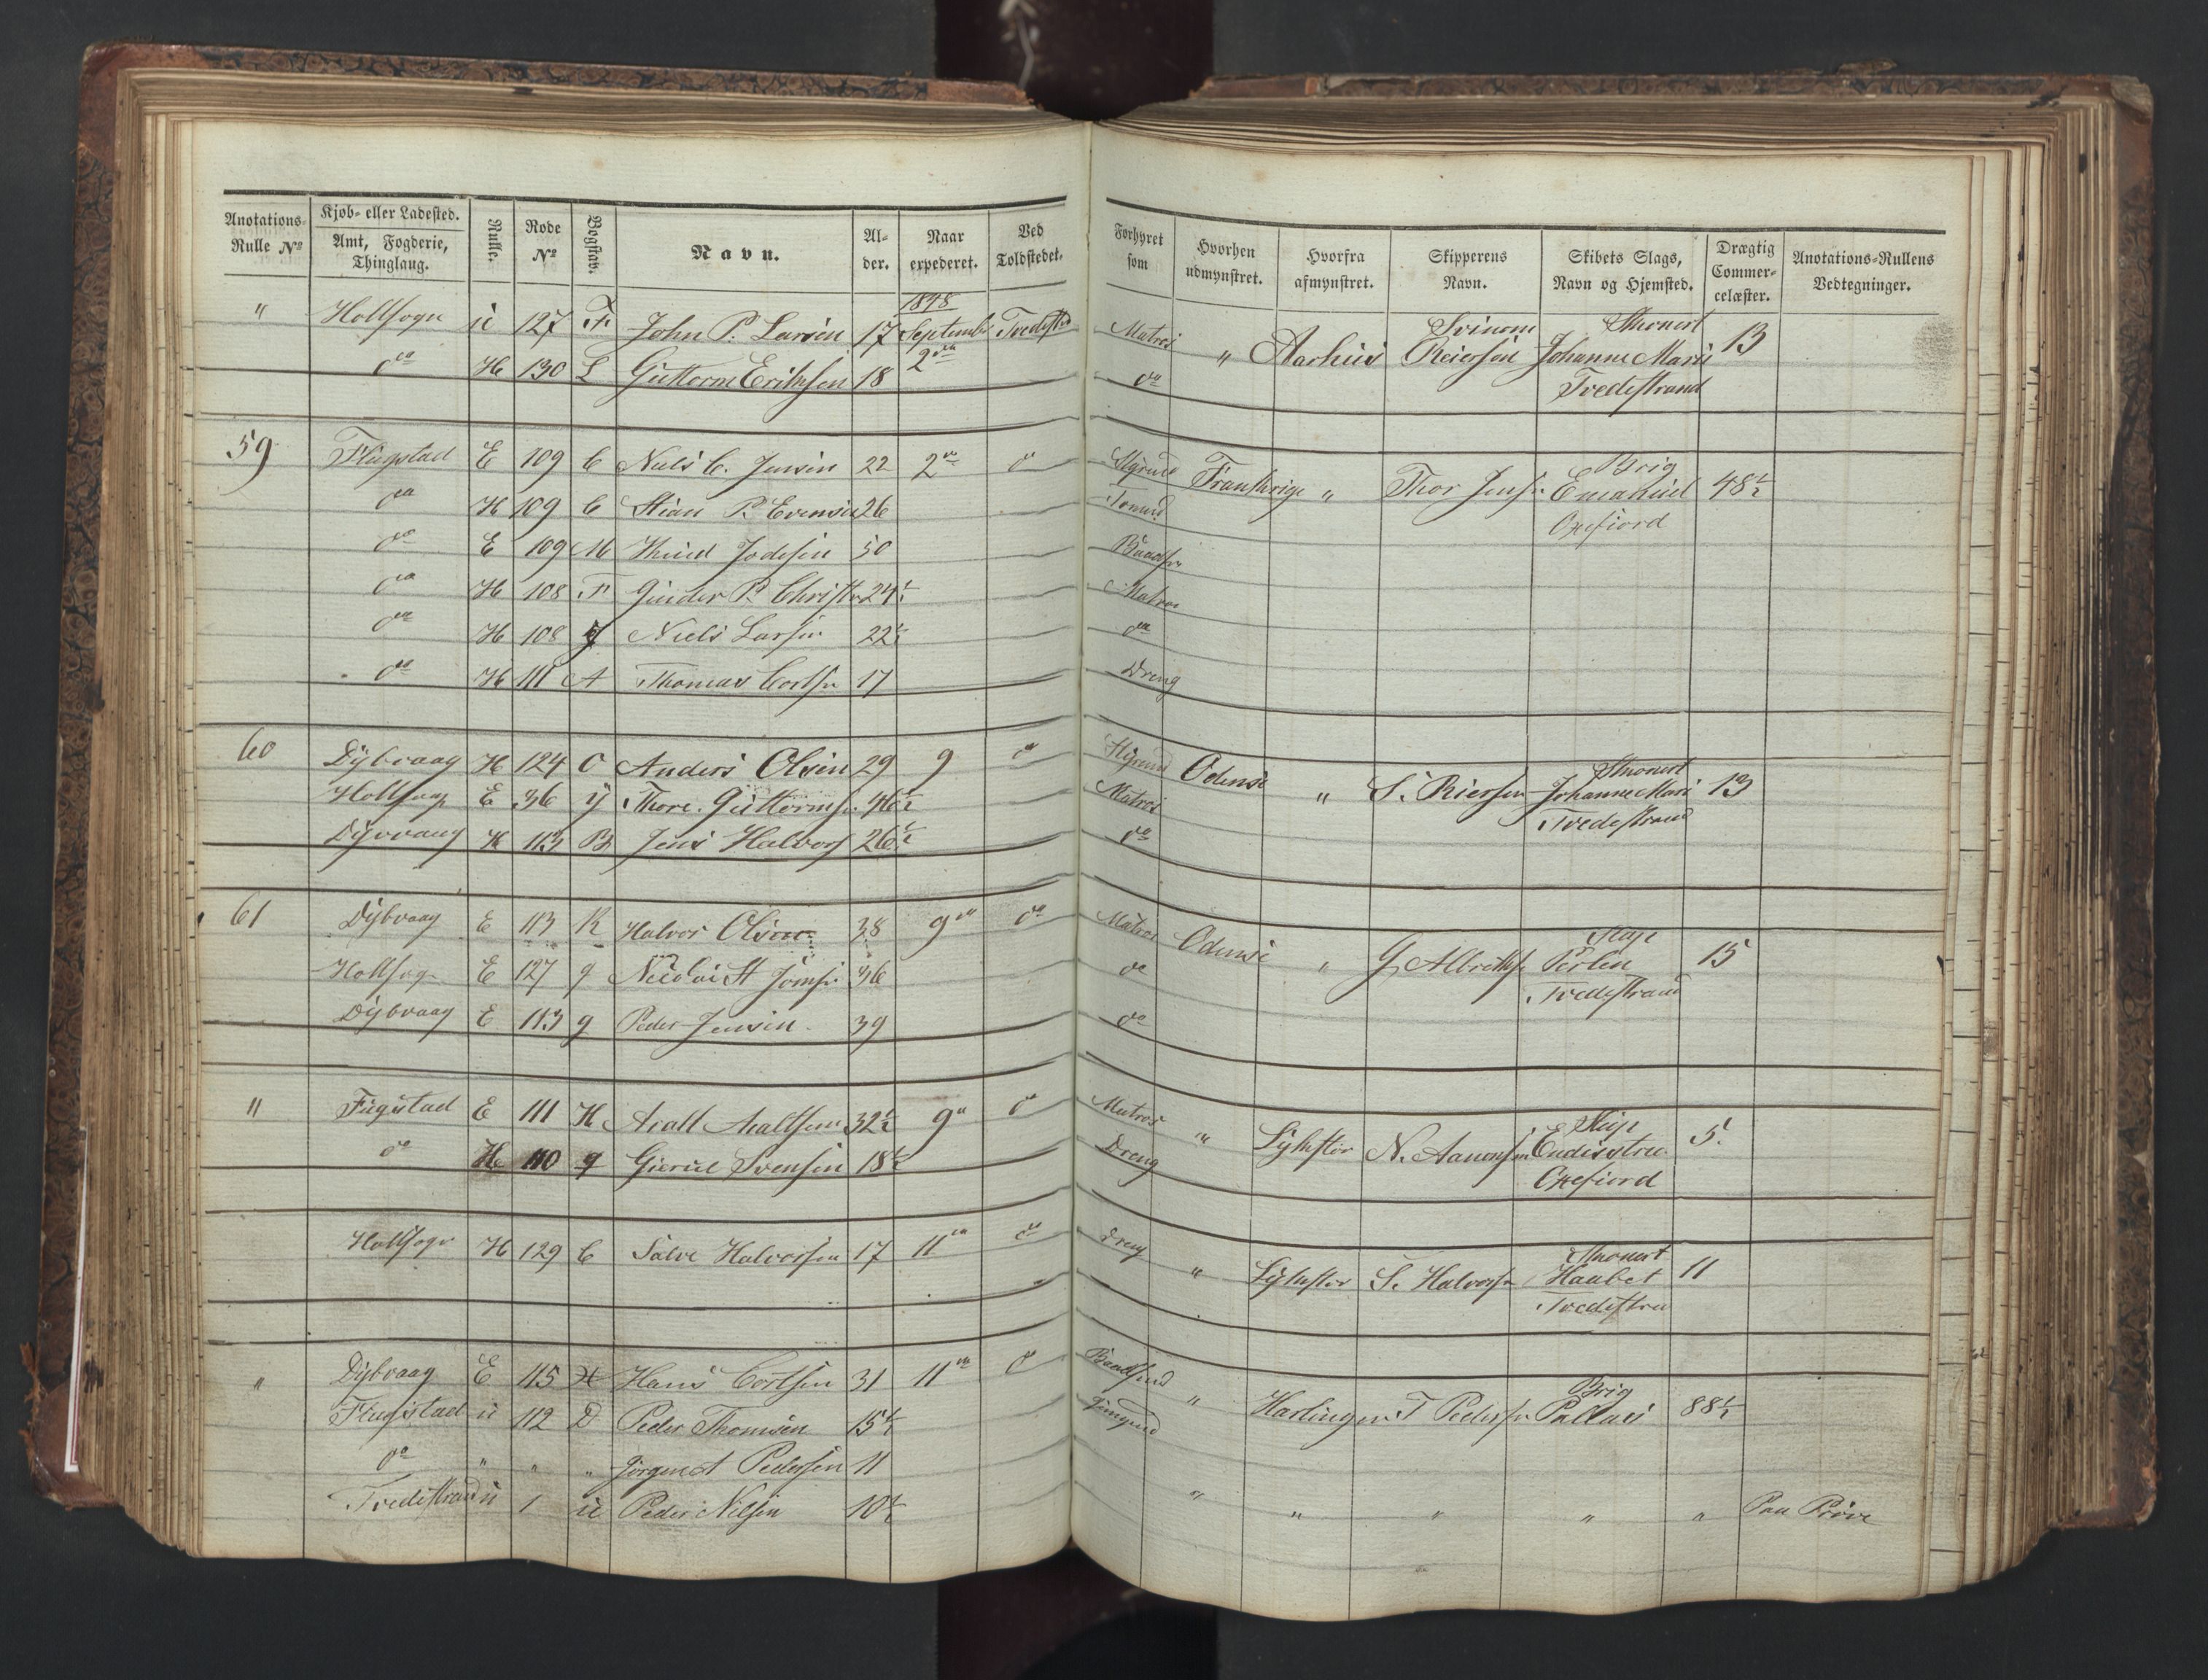 Anotations-Rulle Nº | Kjøb- eller Ladested. Amt, Fogderie, Thinglaug. | Rulle. | Rode Nº | Bogstav. | Navn. | Al-der. | Naar expederet. | Ved Toldstedet. | Forhyret som | Hvorhen udmynstret. | Hvorfra afmynstret. | Skipperens Navn. | Skibets Slags, Navn og Hjemsted. | Drægtig Commer-celæster. | Anotations-Rullens Vedtegninger.
" | Holtsogn | ü | 127 | F | John P. Larsen | 17 | 1848 September 2den | Tvedestr | Matros | " | Aarhüs | Reiersen | Johanne Marie Tvedestrand | 13
do | H | 130 | L | Guttorm Eriksen | 18 | do
59 | Flugstad | E | 109 | C | Niels C. Jensen | 22 | 2den | do | Styrmd | Frankrige | " | Thor Jens | Brig Emanuel Oxefiord | 48½
do | H | 109 | C | Stian P. Evensen | 26 | Tømmd
do | E | 109 | M | Knud | 50 | Baadsm
do | H | 108 | F | Gunder P. Christ | 24½ | Matros
do | H | 108 | Niels Larsen | 22½ | do
do | H | 111 | A | Thomas Cortsn | 17 | Dreng
60 | Dybvaag | H | 124 | O | Anders Olsen | 29 | 9 | do | Styrmd | Odense | " | S. Riersen | Johanne Marie Tvedestrand | 13
Holtsogn | E | 36 | Y | Thore Guttorms | 46½ | Matros
Dybvaag | H | 113 | B | Jens Halvors | 26½ | do
61 | Dybvaag | E | 113 | K | Halvor Olsen | 38 | 9de | do | Matros | Odense | " | Albrethsn | Perlen Tvedestrand | 15
Holtsogn | E | 127 | Nicolai | 36 | do
Dybvaag | E | 113 | g | Peder Jensen | 39 | do
" | Flugstad | E | 111 | H | 32½ | 9de | do | Matros | " | Lykstør | N. Aanonsen | Oxefiord | 5.
do | H | 110 | Svensen | 18½ | Dreng
Holtsogn | H | 129 | C | Salve Halvorsen | 17 | 11de | do | Dreng | " | Lykstør | S. Halvorsn | Haabet Tvedestra | 11
" | Dybvaag | E | 115 | H | Hans Cortsen | 31 | 11de | do | Baadsmd | " | Harlingen | T Pedersen | Brig Pallas | 88½
Flugstad | ü | 112 | D | Peder Thomsen | 15½ | Jungmd
do | " | " | " | Jørgen A Pedersen | 11
Tvedestrand | ü | 1 | ü | Peder Nilsen | 10½ | " | " | " | " | " | Paa Prøve